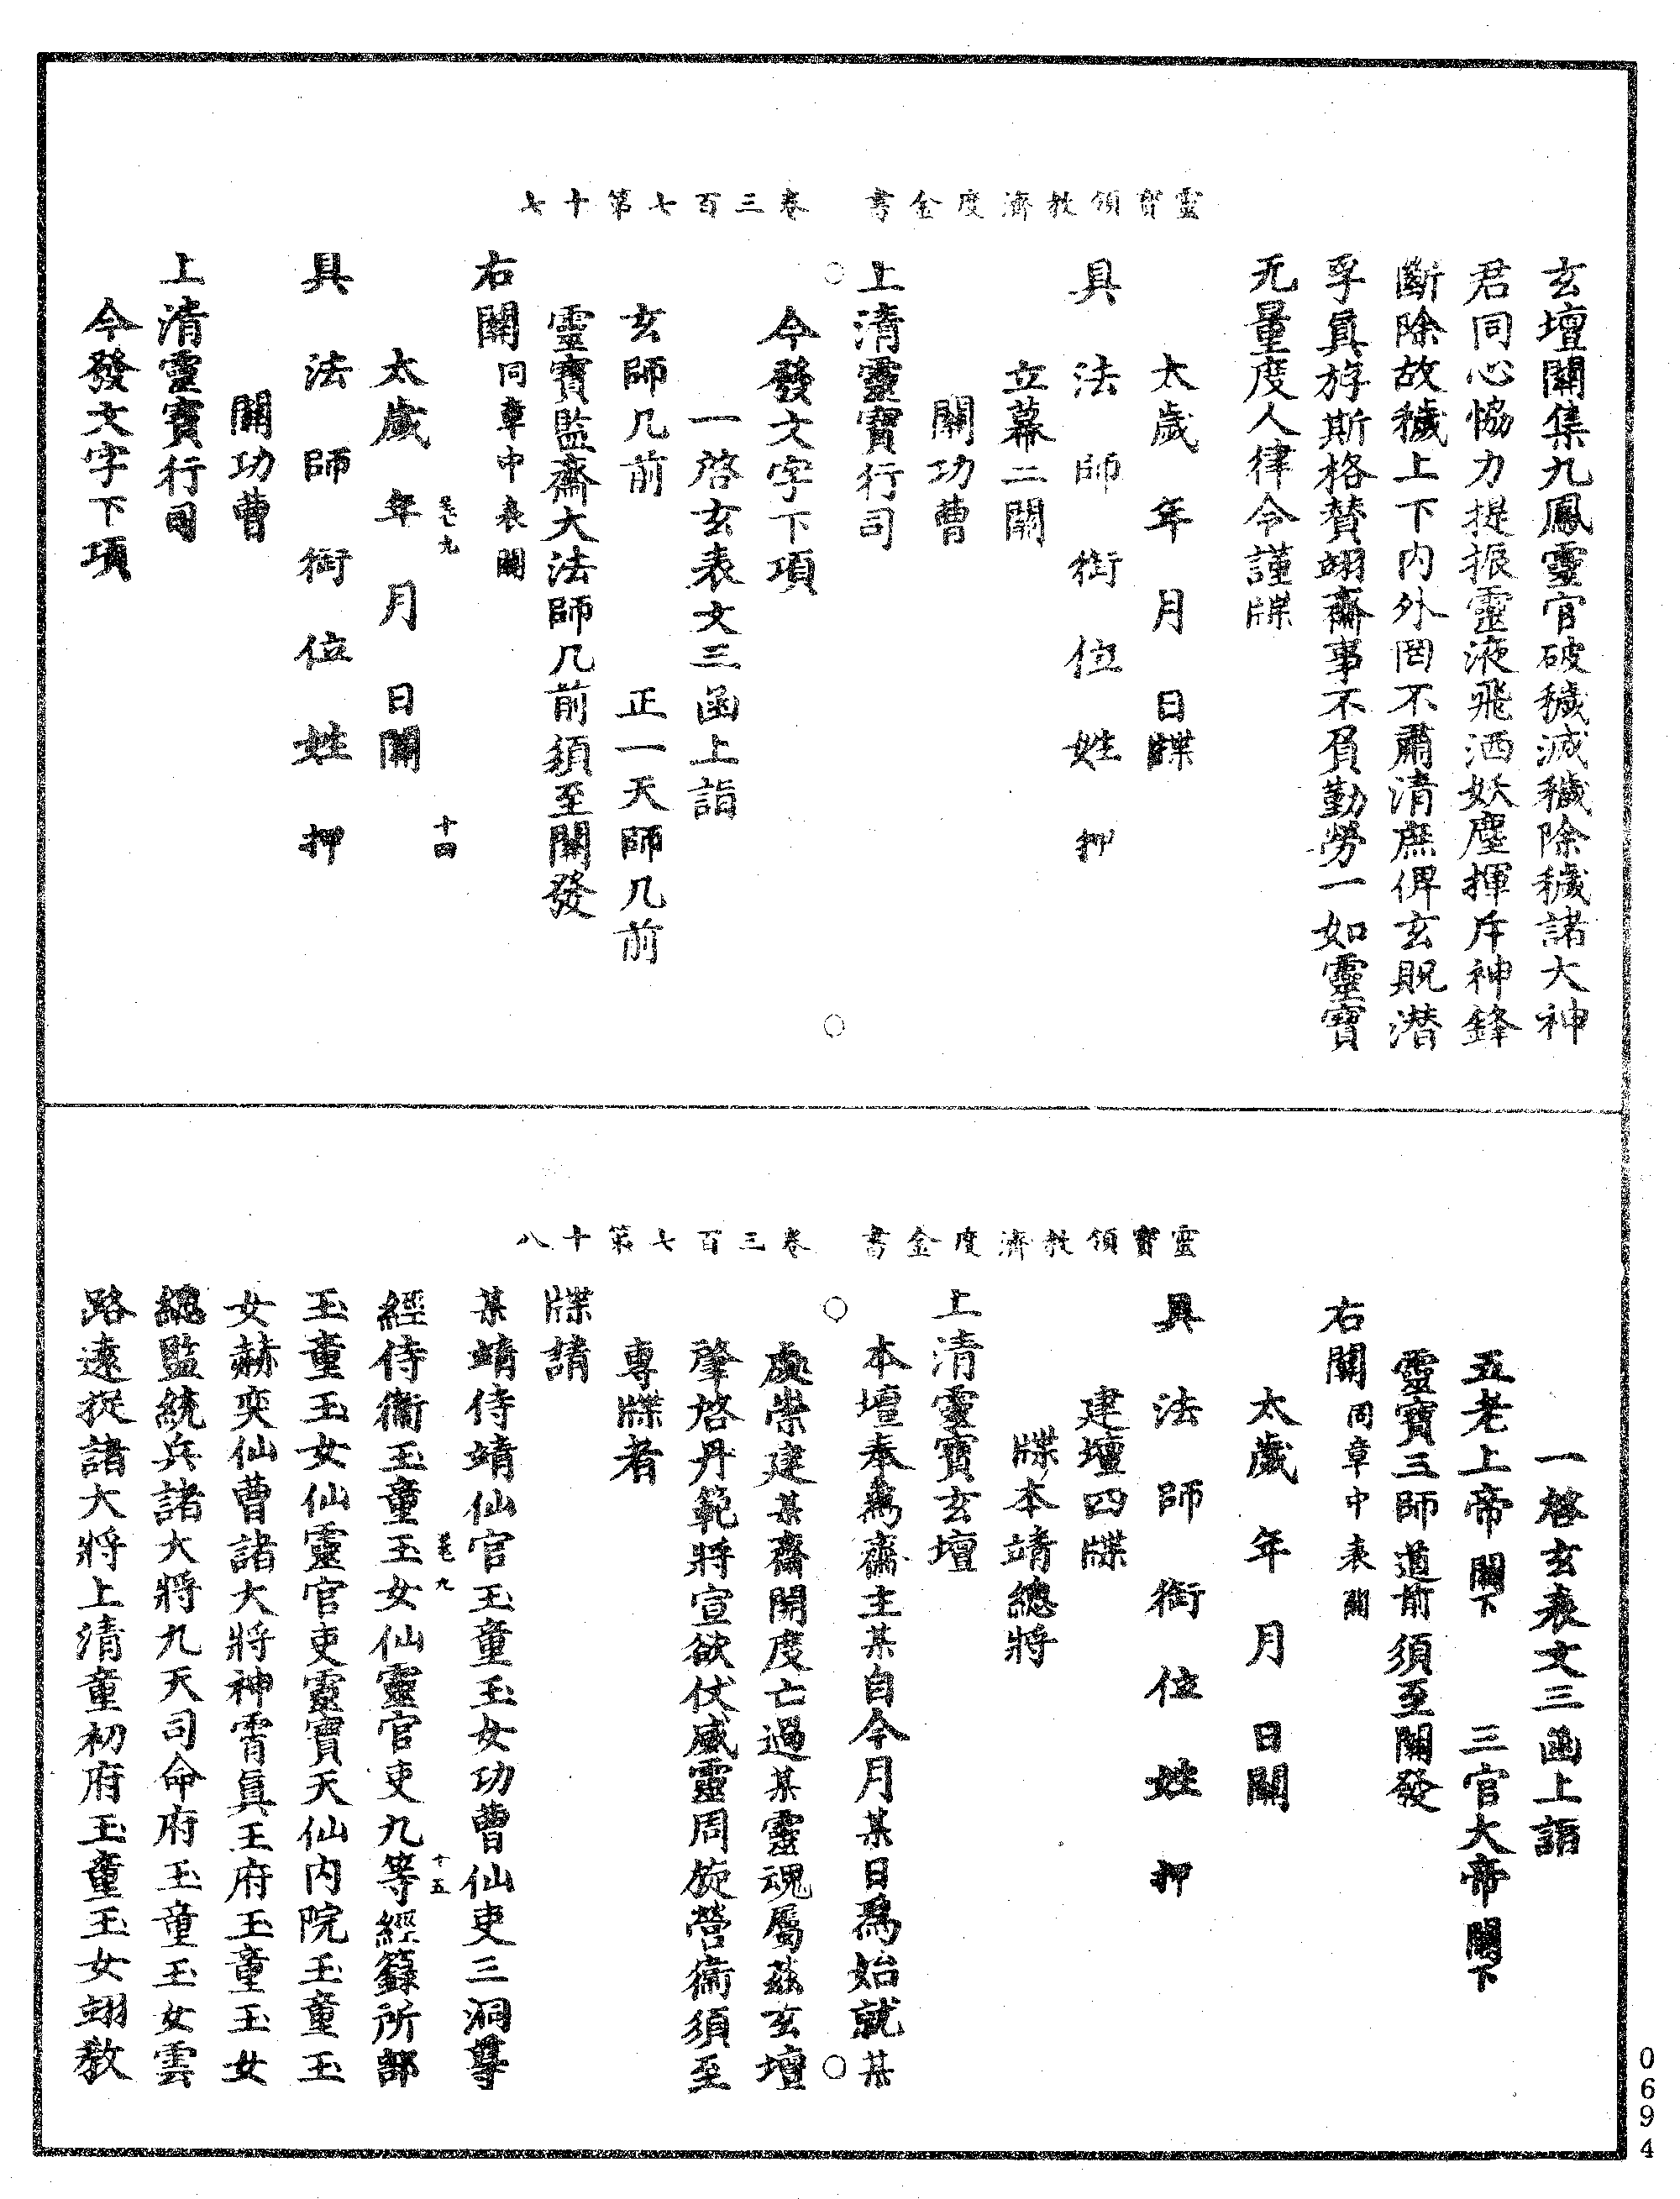 靈寶領教濟度金書　卷三百七第十七
玄壇關集九鳳靈官破穢滅穢除穢諸大神
君同心恊力提振靈液飛洒妖塵揮斥神鋒
斷除故穢上下內外罔不肅清庶俾玄貺潜
孚眞斿斯格賛翊齋事不負勤勞一如靈寶
无量度人律令謹牒
太歲　年　月　日牒
具　法　師　銜　位　姓　押
立幕二關
關功曹
上清靈寶行司
今發文字下項
一啓玄表文三函上詣
玄師几前　正一天師几前
靈寶監齋大法師几前須至關發
右關同章中表關
卷七　九　十四
太歲　年　月　日關
具　法　師　銜　位　姓　押
關功曹
上清靈寶行司
今發文字下項
靈寶領教濟度金書　卷三百七第十八
一啓玄表文三函上詣
五老上帝闕下　三官大帝闕下
靈寶三師道前須至關發
右關同章中表關
太歲　年　月　日關
具　法　師　銜　位　姓　押
建壇四牒
牒本靖總將
上清靈寶玄壇
本壇奉爲齋主某自今月某日爲始就某
處崇建某齋開度亡過某靈魂屬茲玄壇
肇啓丹範將宣欲仗威靈周旋營衞須至
專牒者
牒請
某靖侍靖仙官玉童玉女功曹仙吏三洞尊
經侍衞玉童玉女仙靈官吏九等經籙所部
卷七　九　十五
玉童玉女仙靈官吏靈寶天仙內院玉童玉
女赫奕仙曹諸大將神霄眞王府玉童玉女
總監統兵諸大將九天司命府玉童玉女雲
路遠捉諸大將上清童初府玉童玉女翊教
0694